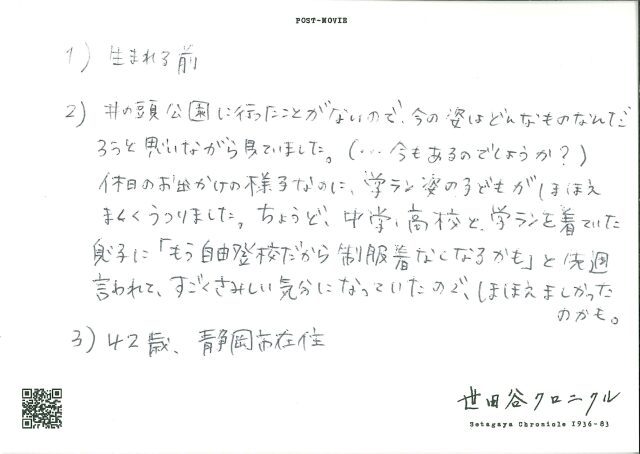 POST-MOVIE
1) 生まれる前
2) 井の頭公園に行ったことがないので、今の姿はどんなものなんだ
ろうと思いながら見ていました。(…今もあるのでしょうか?)
休日のお出かけの様子なのに、学ラン姿の子どもがほほえ
ましくうつりました。ちょうど、中学、高校と、学ランを着ていた
息子に「もう自由登校だから制服着なくなるかも」と先週
言われて、すごくさみしい気分になっていたので、ほほえましかった
のかも。
3) 42歳、静岡市在住
世田谷クロニクル
Setagaya Chronicle 1936-83